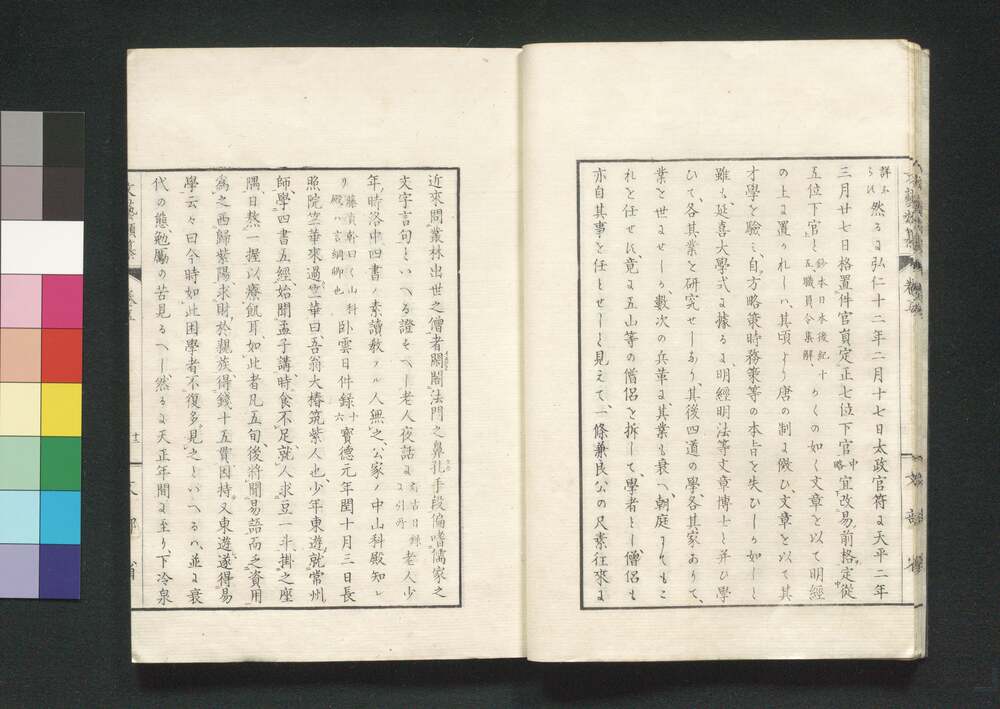 然るに弘仁十二年二月十七日太政官符に天平二年
三月廿七日格置件官員定正七位下官中略宜改易前格定從
五位下官と鈔本日本後紀十五職員令集解かくの如く文章と以て明經
の上に置かれしハ其頃より唐の制に倣ひ文章と以て其
才學と驗し自方略策時務策等の本旨と失ひしか如しと
雖も延喜大學式に據るに明經明法等文章博士と并ひ學
ひて各其業と研究せしあり其後四道の學各其家ありて
業と世にせしか數次の兵革に其業も衰へ朝庭にてもこ
れと任せ竟に五山等の僧侶と拆して學者とし僧侶も
亦自其事と任とせしと見えて一條兼良公の尺素往來に
近來問叢林出世之僧者閣閤法門之鼻孔手段偏嗜儒家之
文字言句といへる證すへし老人夜話に老人少
年時洛中四書ノ素讀教フル人無之公家ノ中山科殿知レ
リ藤貞幹曰く山科殿ハ言綱卿也臥雲日件録十六寶德元年閏十月三日長
照院竺華來過竺華曰吾翁大椿筑紫人也少年東遊就常州
師學四書五經始聞孟子講時食不足就人求豆一斗掛之座
隅日熬一握以療飢耳如此者凡五旬後將聞易語而乏資用
爲之西歸紫陽求財於親族得錢十五貫囙持又東遊遂得易
學云々曰今時如此困學者不復多見之といへるハ並に衰
代の態勉勵の苦見るへし然るに天正年間に至り下冷泉
文藝類纂